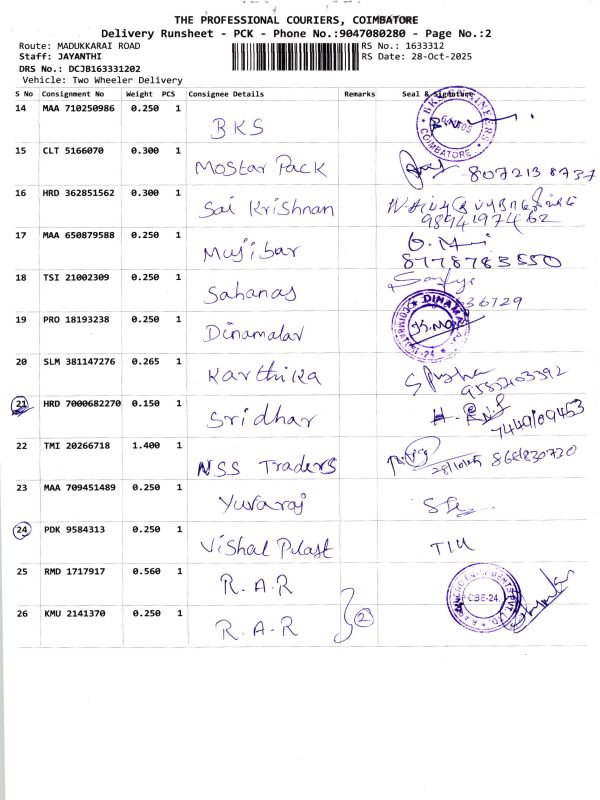 THE PROFESSIONAL COURIERS, COIMBATORE
Delivery Runsheet - PCK - Phone No.:9047080280 - Page No.:2
Route: MADUKKARAI ROAD
RS No.: 1633312
Staff: JAYANTHI
RS Date: 28-Oct-2025
DRS No.: DCJB163331202
Vehicle: Two Wheeler Delivery
S No Consignment No Weight PCS Consignee Details Remarks Seal & Signature
14 MAA 710250986 0.250 1 BKS COIMBATORE
15 CLT 5166070 0.300 1 Mostar Pack 8072138737
16 HRD 362851562 0.300 1 Sai Krishnan 9894197462
17 MAA 650879588 0.250 1 Mujibar 8778783550
18 TSI 21002309 0.250 1 Sahanas 36729
19 PRO 18193238 0.250 1 Dinamalar
20 SLM 381147276 0.265 1 Karthika
21 HRD 7000682270 0.150 1 Sridhar 7449109453
22 TMI 20266718 1.400 1 NSS Traders 28/10/25
23 MAA 709451489 0.250 1 Yuvaraj
24 PDK 9584313 0.250 1 Vishal Plast
25 RMD 1717917 0.560 1 R.A.R CBE-24
26 KMU 2141370 0.250 1 R.A.R 2